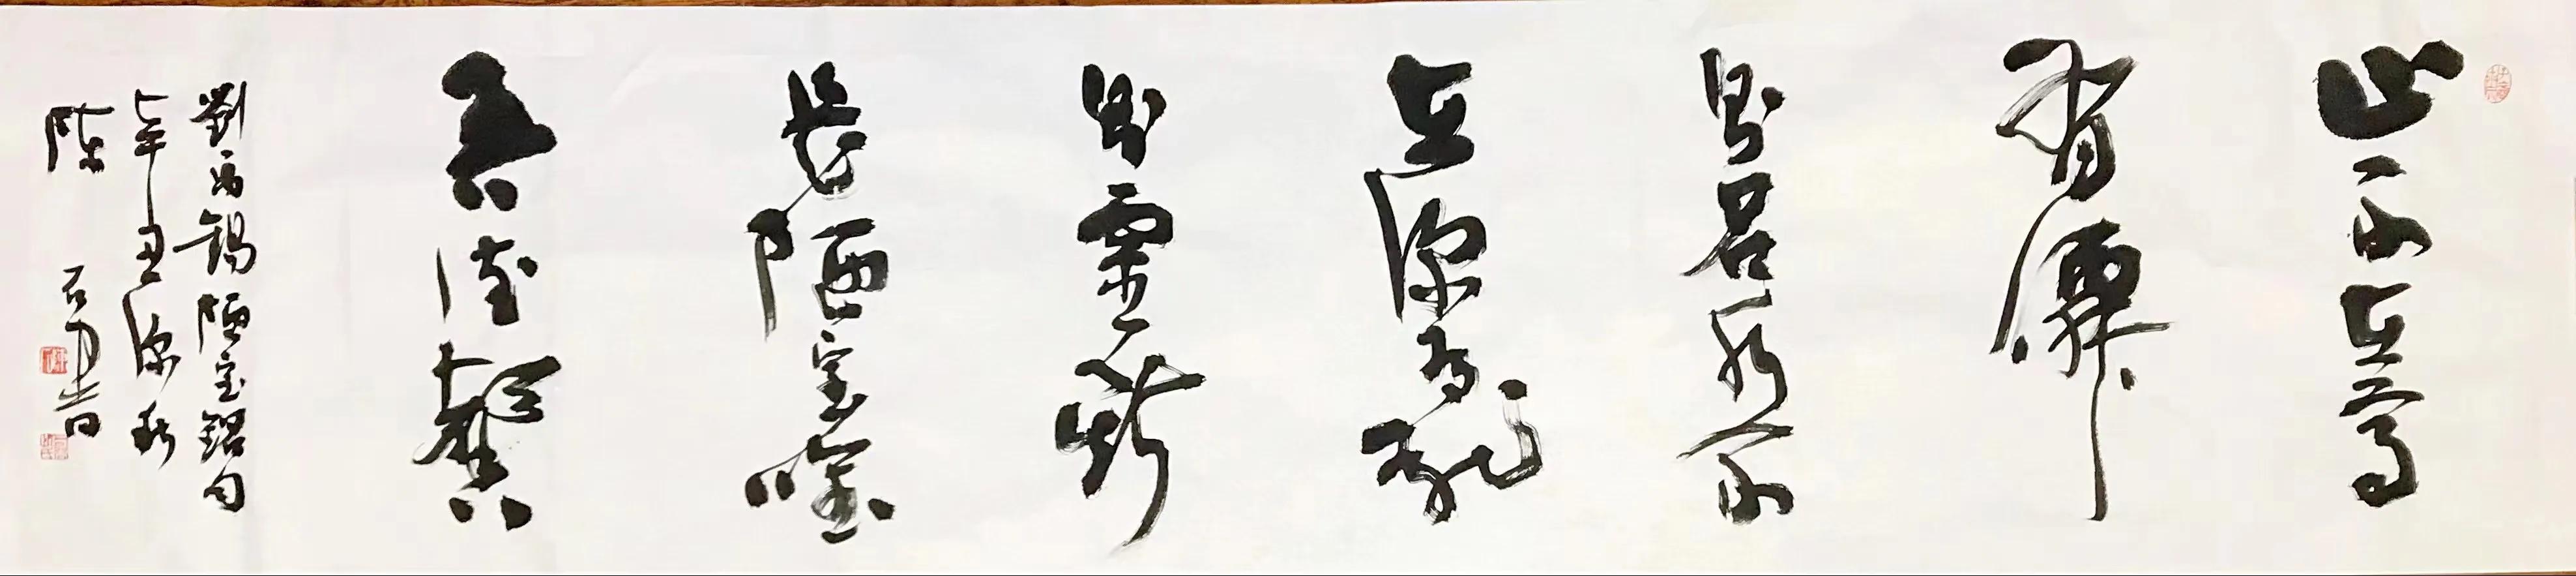 山不在高
有僊
則名水不
在深有龍
則靈斯
是陋室惟
吾德馨
劉禹錫陋室銘句
辛丑深秋
陳
石 書